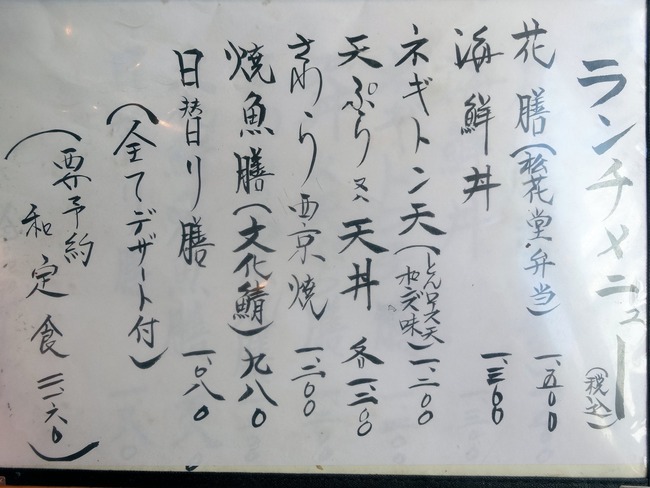 ランチメニュー(税込)
花膳(松花堂弁当)一、五〇〇
海鮮丼 一、三〇〇
ネギトン天(とんロース天ポンズ味)一、二〇〇
天ぷら又ハ天丼 各一、三〇〇
さわら西京焼 一、三〇〇
焼魚膳(文化鯖)九八〇
日替り膳 一、〇八〇
(全てデザート付)
(要予約
和定食 二、一六〇)